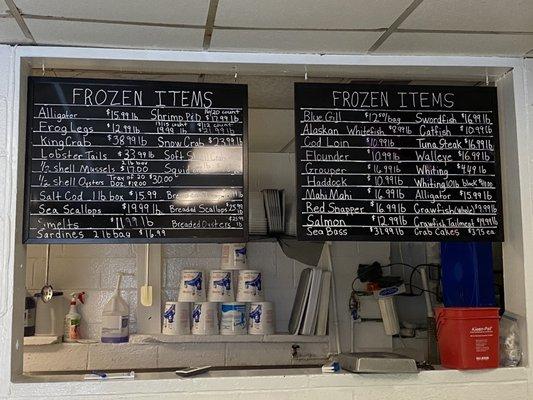 FROZEN ITEMS
Alligator $15.99 lb Shrimp P&D
Frog Legs $12.99 lb
King Crab $38.99 lb Snow Crab $23.99 lb
Lobster Tails $33.99 lb Soft Shell
1/2 shell Mussels $17.00
1/2 shell Oysters Doz $18.00 Tray of 30 $30.00
Salt Cod 1 lb box $15.99
Sea Scallops $19.99 lb Breaded Scallops
Smelts $11.99 lb Breaded Oysters lb
Sardines 2 lb bag $16.99
FROZEN ITEMS
Blue Gill $12.50/bag Swordfish $16.99 lb
Alaskan Whitefish $8.99 lb Catfish $10.99 lb
Cod Loin $10.99 lb Tuna Steak $16.99 lb
Flounder $10.99 lb Walleye $16.99 lb
Grouper $16.99 lb Whiting $4.49 lb
Haddock $10.99 lb Whiting 10 lb block
Mahi Mahi $16.99 lb Alligator $15.99 lb
Red Snapper $16.99 lb Crawfish (Whole)
Salmon $12.99 lb Crawfish Tailmeat
Sea Bass $31.99 lb Crab Cakes $3.75 ea